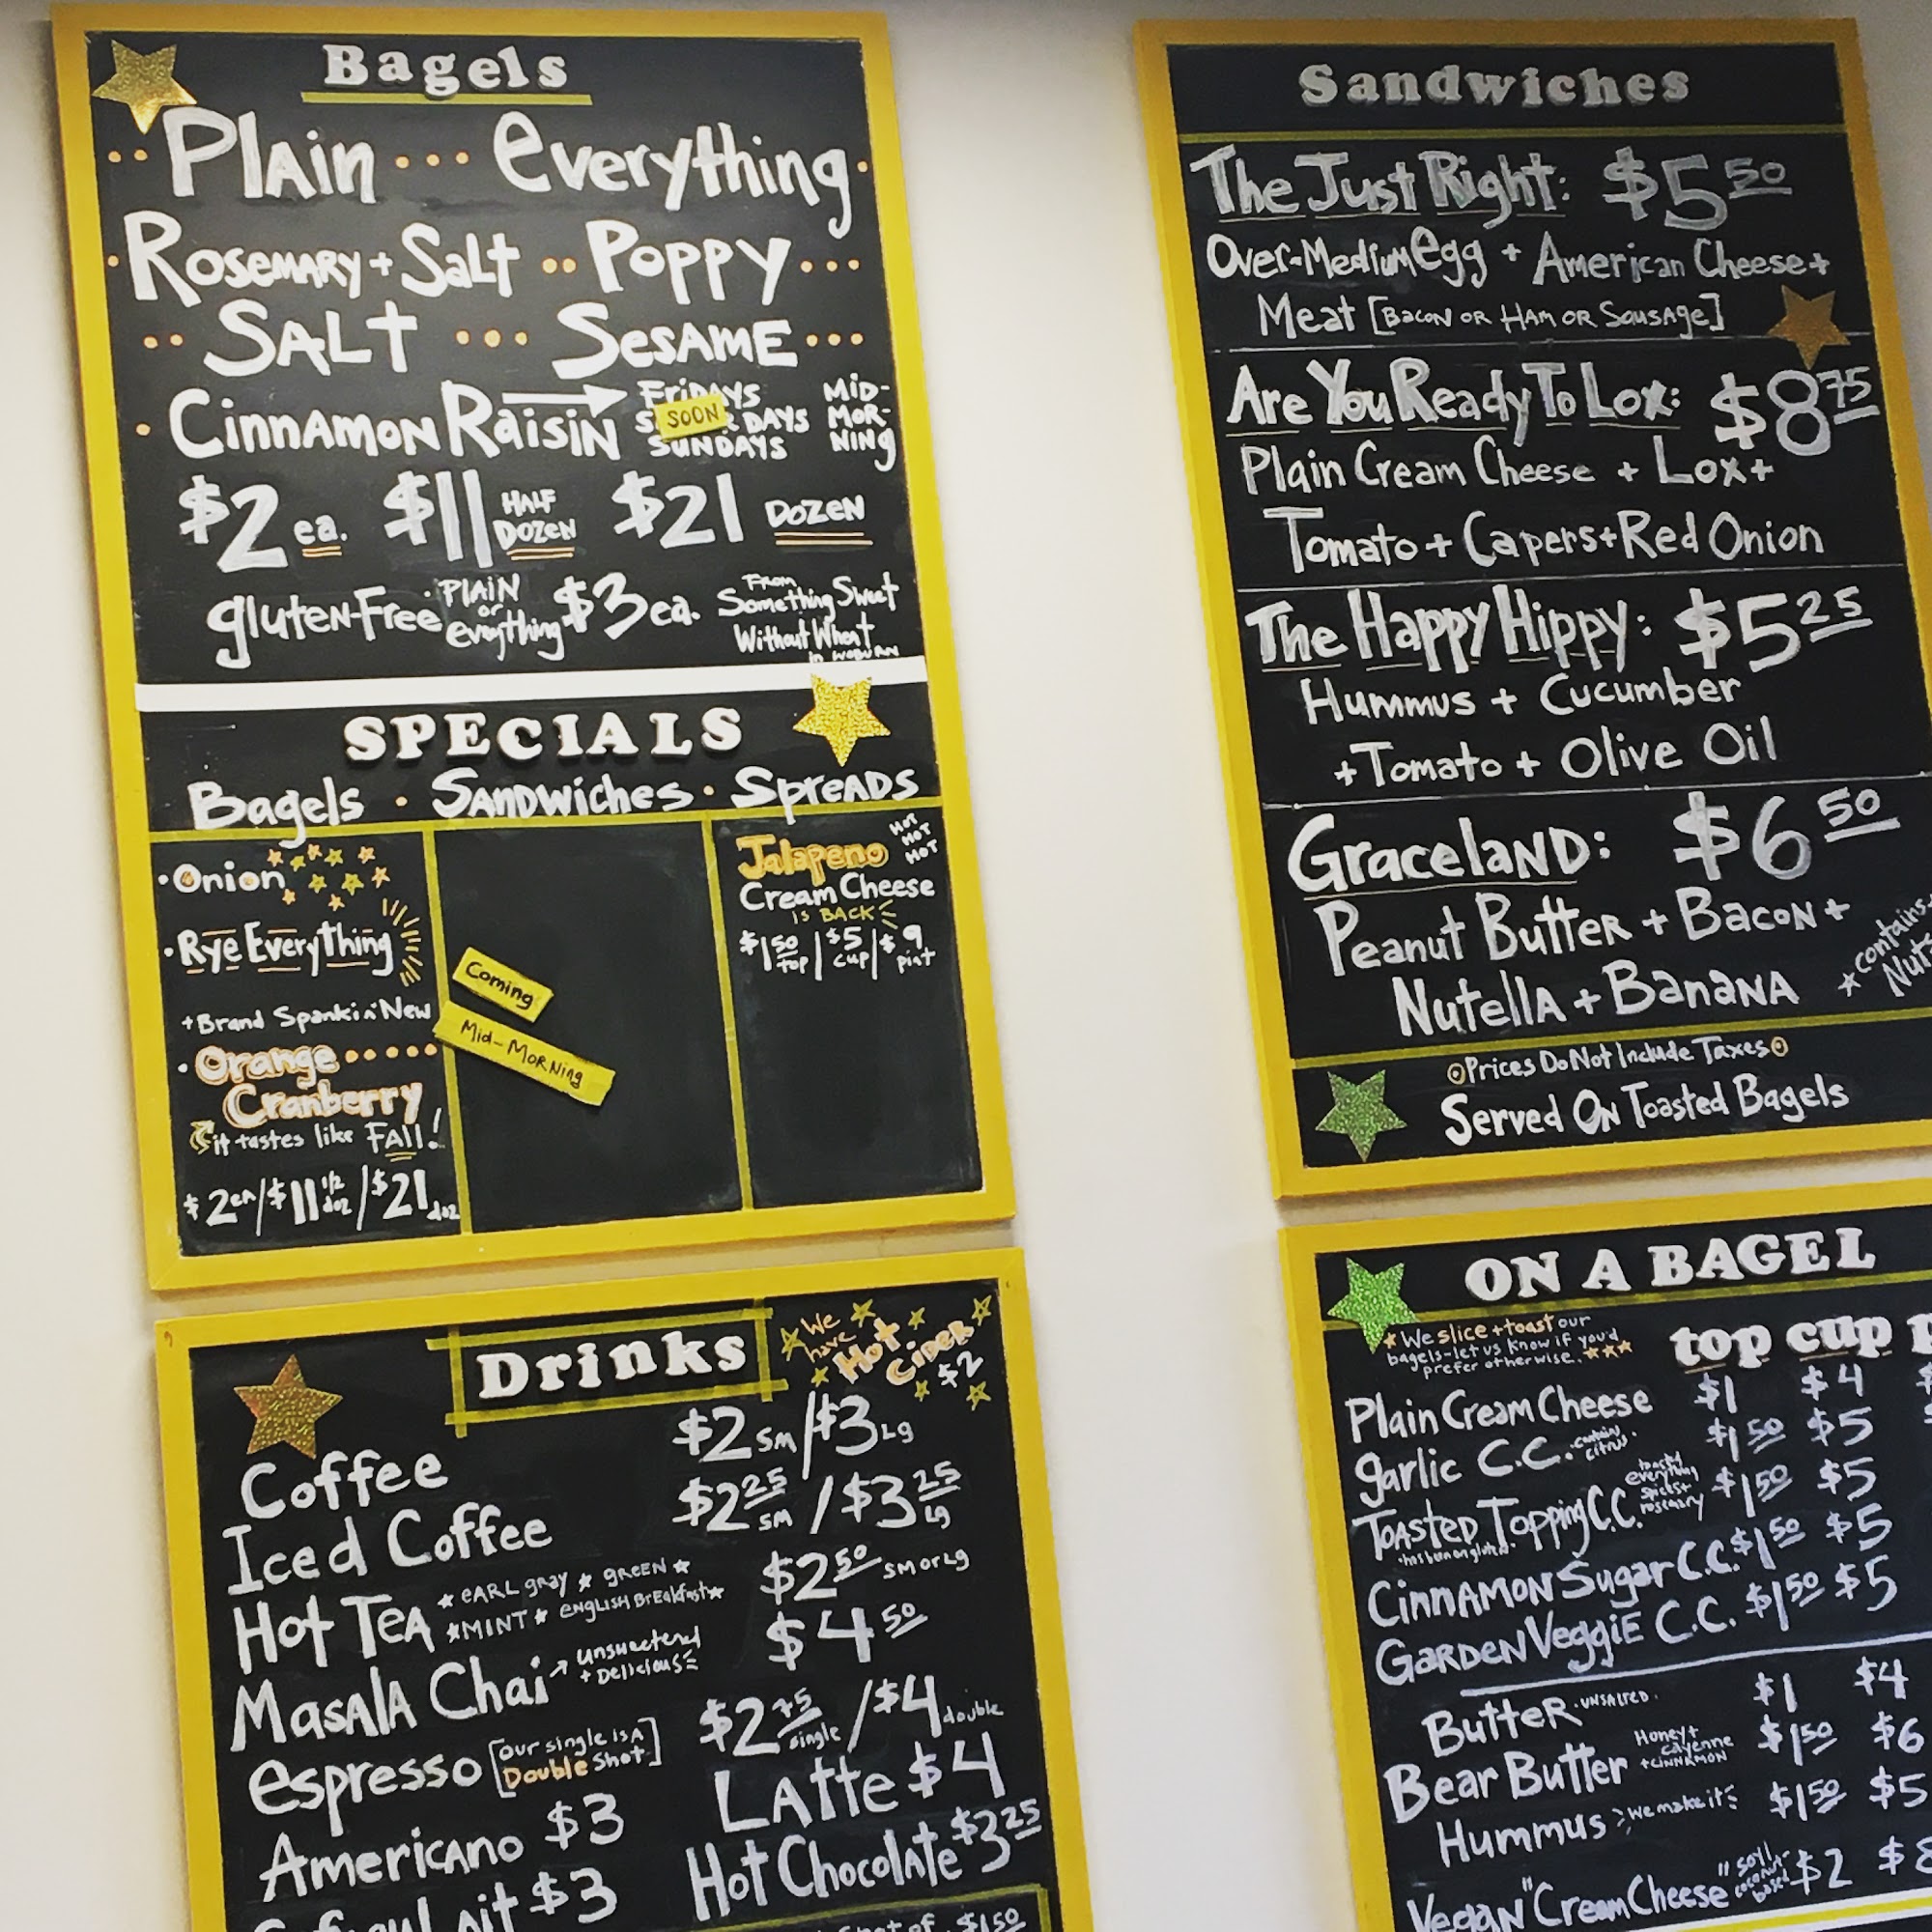 Bagels
Plain ... Everything
Rosemary + Salt .. Poppy ...
Salt ... Sesame ...
Cinnamon Raisin → Fridays
SOON DAYS
Sundays
Mid-
Mor-
ning
$2 ea. $11 Half Dozen $21 Dozen
gluten Free Plain or everything $3 ea. From Something Sweet Without Wheat in Woburn
SPECIALS
Bagels · Sandwiches · Spreads
· Onion
· Rye Everything
+ Brand Spankin' New
· Orange .....
Cranberry
it tastes like FALL!
$2 ea / $11 1/2 doz / $21 doz
Coming
Mid-Morning
Jalapeno HOT HOT HOT
Cream Cheese
is BACK
$1 50 top | $5 cup | $9 pint
Drinks
We have Hot Cider $2
Coffee $2 sm / $3 Lg
Iced Coffee $2 25 sm / $3 25 Lg
Hot Tea * Earl gray * green * $2 50 sm or Lg
* Mint * English Breakfast *
Masala Chai → unsweetened + Delicious $4 50
espresso [our single is A Double Shot] $2 75 single / $4 double
Americano $3 Latte $4
$3 Hot Chocolate $3 25
$1 50
Sandwiches
The Just Right: $5 50
Over-Medium Egg + American Cheese +
Meat [Bacon or Ham or Sausage]
Are You Ready To Lox: $8 75
Plain Cream Cheese + Lox +
Tomato + Capers + Red Onion
The Happy Hippy: $5 25
Hummus + Cucumber
+ Tomato + Olive Oil
Graceland: $6 50
Peanut Butter + Bacon +
Nutella + Banana
* contains
Nuts
Prices Do Not Include Taxes
Served On Toasted Bagels
ON A BAGEL
* We slice + toast our
bagels - let us know if you'd
prefer otherwise. ***
top cup
Plain Cream Cheese $1 $4
garlic C.C. contains citrus $1 50 $5
Toasted Topping C.C. toasty everything spices + rosemary $1 50 $5
Cinnamon Sugar C.C. $1 50 $5
Garden Veggie C.C. $1 50 $5
Butter · unsalted · $1 $4
Bear Butter Honey + cayenne + cinnamon $1 50 $6
Hummus we make it $1 50 $5
Vegan "Cream Cheese" soy $2 $8